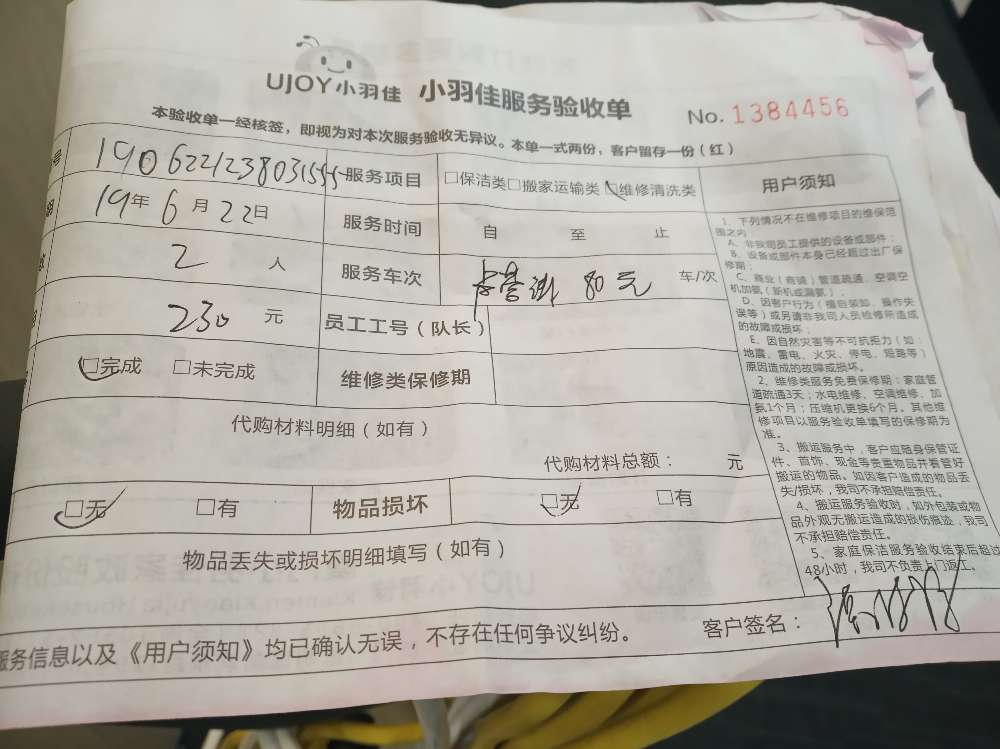 UJOY小羽佳 小羽佳服务验收单 No. 1384456
本验收单一经核签，即视为对本次服务验收无异议。本单一式两份，客户留存一份（红）
号 190622123803155 服务项目 □保洁类□搬家运输类□维修清洗类 用户须知
19年6月22日 服务时间 自 至 止
2 人 服务车次 80元 车/次
230 元 员工工号（队长）
□完成 □未完成 维修类保修期
代购材料明细（如有）
代购材料总额： 元
□无 □有 物品损坏 □无 □有
物品丢失或损坏明细填写（如有）
服务信息以及《用户须知》均已确认无误，不存在任何争议纠纷。 客户签名：
1、下列情况不在维修项目的维保范
围之内：
A、非我司员工提供的设备或部件；
B、设备或部件本身已经超过出厂保
修期；
C、商业（商铺）管道疏通、空调空
机加氨（新机或漏氨）；
D、因客户行为（擅自装卸、操作失
误等）或另请非我司人员检修所造成
的故障或损坏；
E、因自然灾害等不可抗拒力（如：
地震、雷电、火灾、停电、短路等）
原因造成的故障或损坏。
2、维修类服务免费保修期：家庭管
道疏通3天；水电维修、空调维修、加
氨1个月；压缩机更换6个月。其他维
修项目以服务验收单填写的保修期为
准。
3、搬运服务中，客户应随身保管证
件、首饰、现金等贵重物品并看管好
搬运的物品。如因客户造成的物品丢
失/损坏，我司不承担赔偿责任。
4、搬运服务验收时，如外包装或物
品外观无搬运造成的损伤痕迹，我司
不承担赔偿责任。
5、家庭保洁服务验收结束后超过
48小时，我司不负责上门返工。